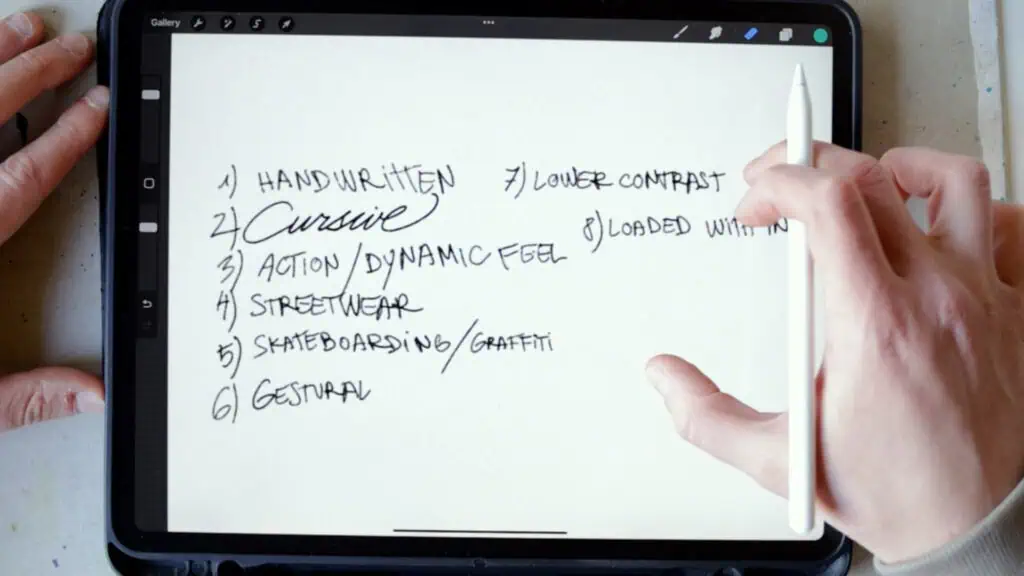 Gallery
1) HANDWRITTEN
2) Cursive
3) ACTION/DYNAMIC FEEL
4) STREETWEAR
5) SKATEBOARDING/GRAFFITI
6) GESTURAL
7) LOWER CONTRAST
8) LOADED WITH IN